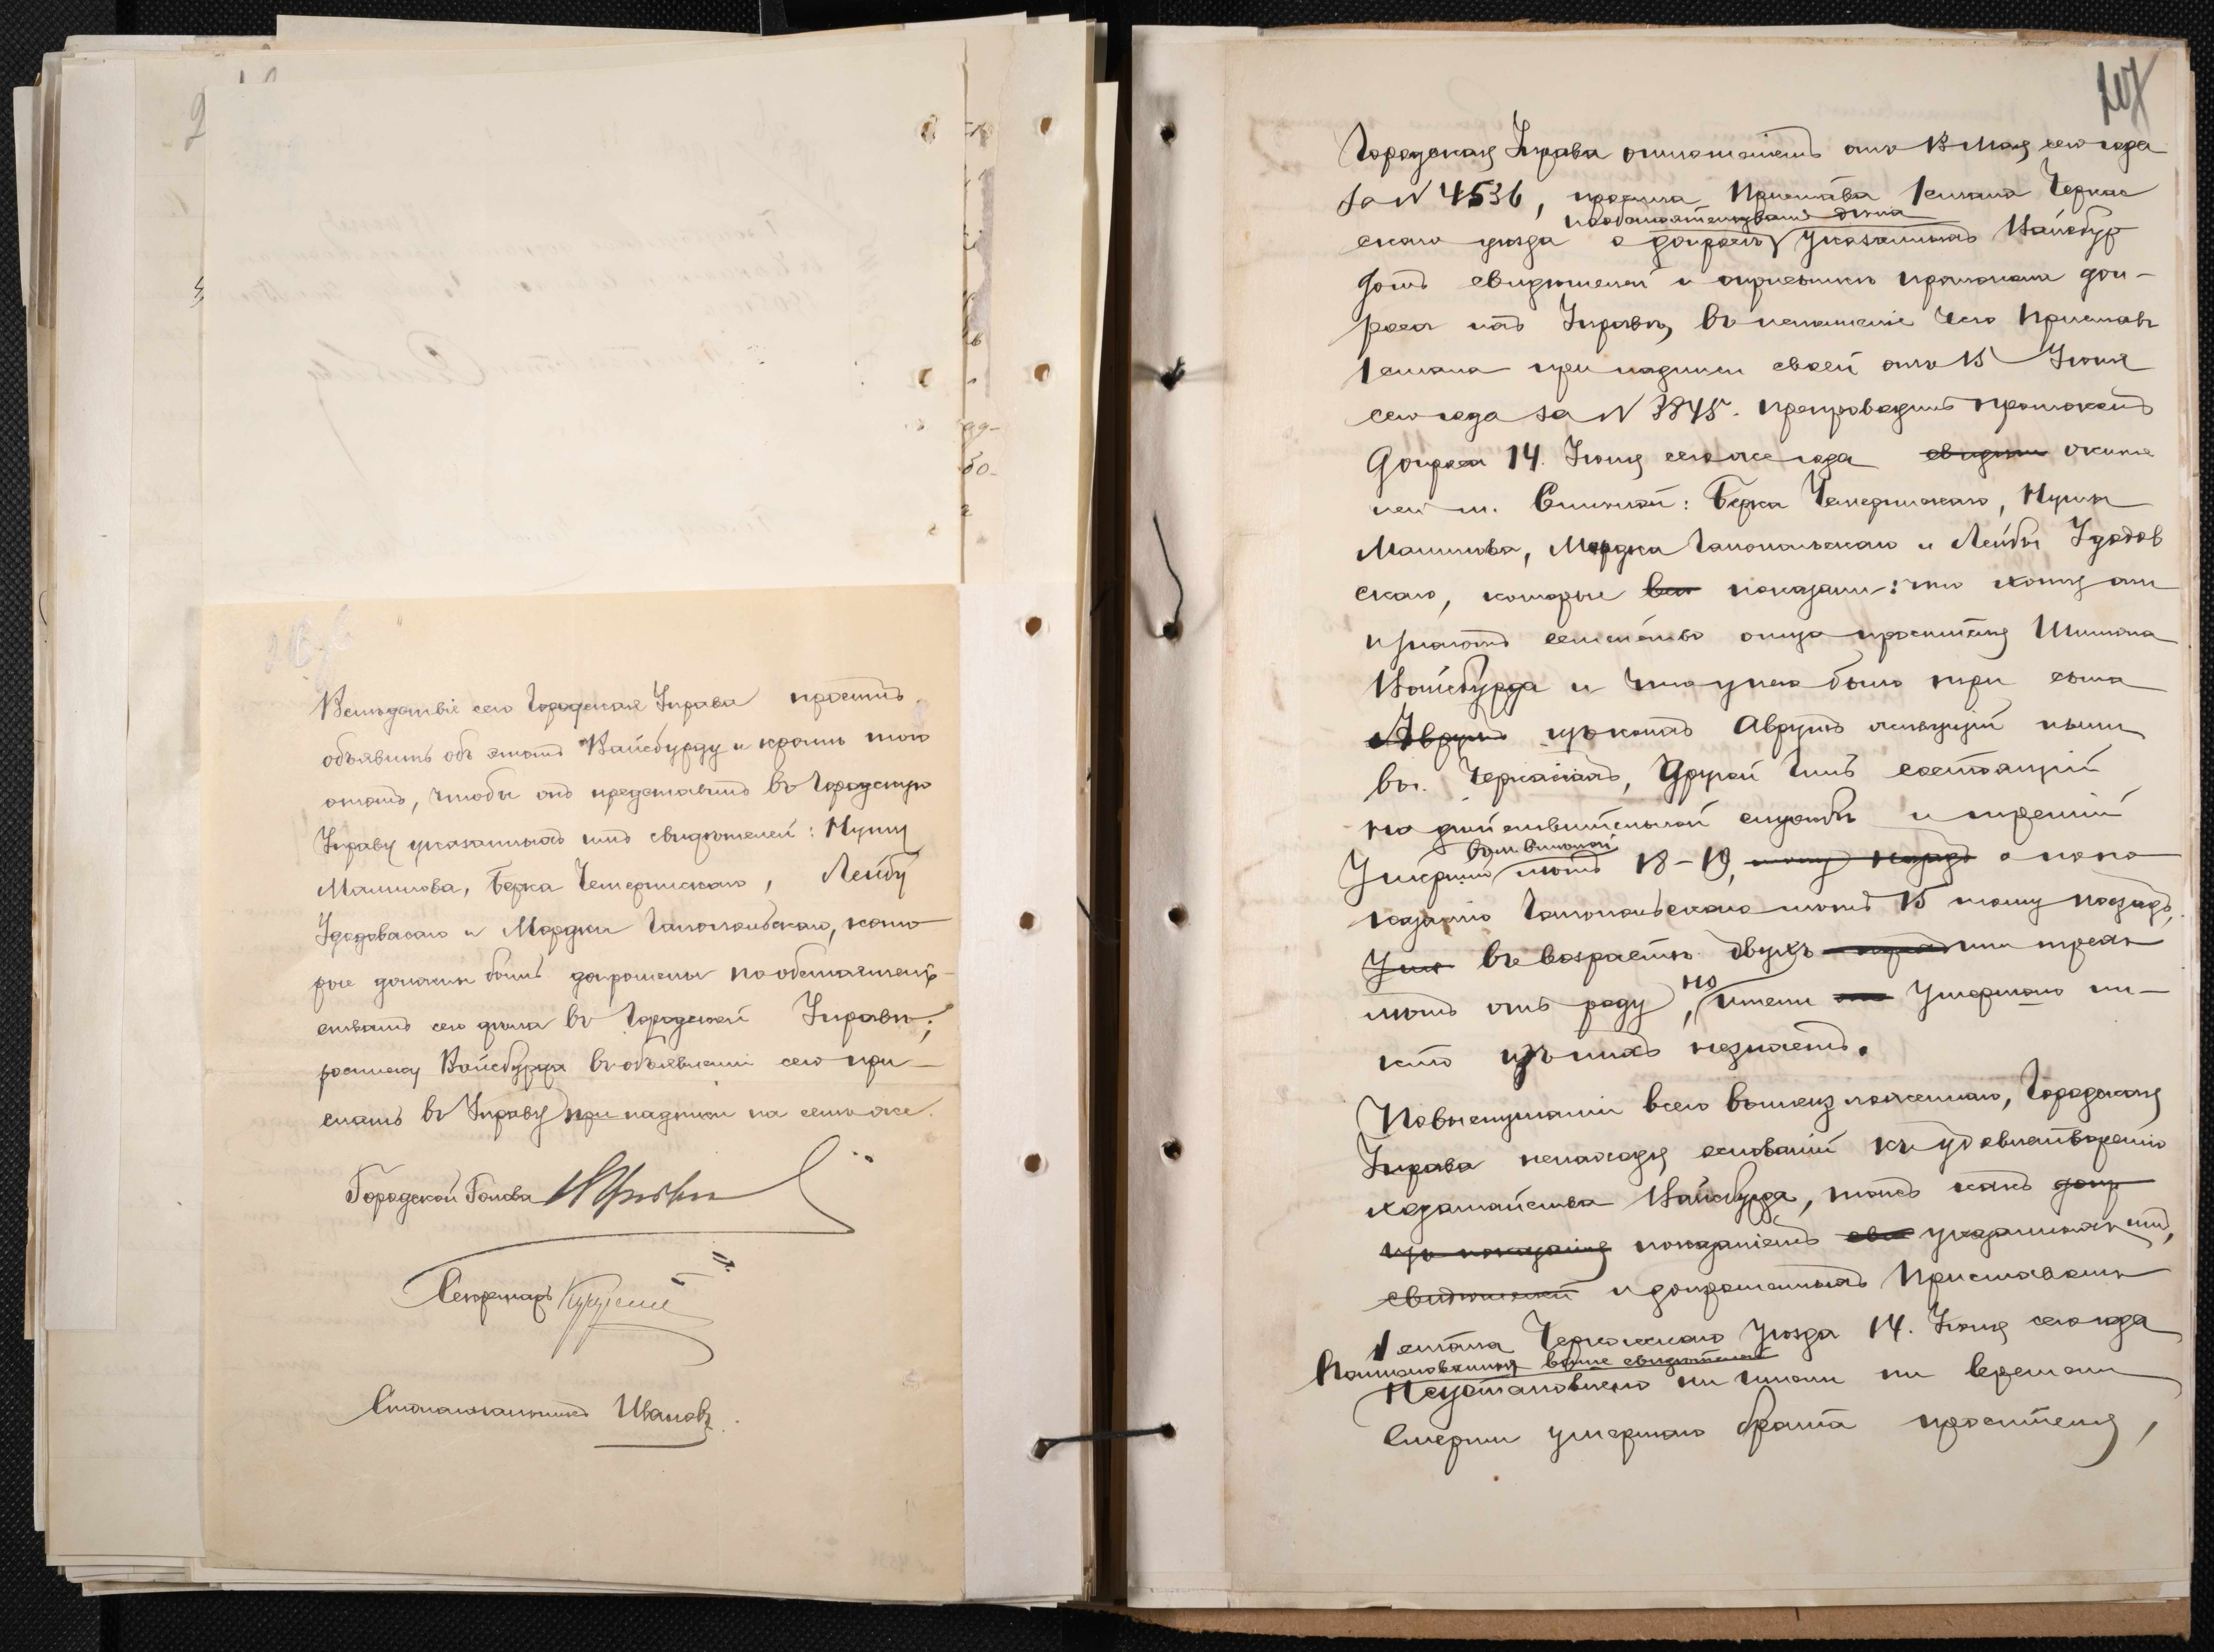 Вслѣдствіе сего Городская Управа проситъ
объявить объ этомъ Вайсбурду и кромѣ того
о томъ, чтобы онъ представилъ въ Городскую
Управу указанныхъ имъ свидѣтелей: Нушу
Машкова, Берка Чемеринскаго, Лейбу
Удодовскаго и Мордки Гапонольскаго, кото
рые должны быть допрошены по обстоятель-
ствамъ сего дѣла въ Городской Управѣ;
росписку Вайсбурда въ объявленіи сего при-
слать въ Управу при надписи на семъ же.
Городской Голова
Секретарь
Столоначальникъ Ивановъ.
207
Городская Управа отношеніемъ отъ 13 Мая сего года
за N 4536, просила Пристава 1 стана Черкас
по обстоятельствамъ дѣла
скаго уѣзда о допросѣ указанныхъ Вайсбур
домъ свидѣтелей и протокола доп-
роса въ Управу, во исполненіе чего Приставъ
1 стана при надписи своей отъ 15 Іюня
сего года за N 3845. препроводилъ протоколъ
допроса 14. Іюня сего же года свидѣт жите
лей м. Смѣлой: Берка Чемеринскаго, Нушы
Машкова, Мордка Гапонольскаго и Лейбы Удодов
скаго, которые все показали: что хотя они
и знаютъ семейство отца просителя Шимона
Вайсбурда и что у него было три сына
Аврумъ изъ коихъ Аврумъ живущій нынѣ
въ г. Черкасахъ, другой состоящій
на дѣйствительной службѣ и третій
Умершій лѣтъ 18-19, тому назадъ а по по
казанію Гапонольскаго лѣтъ 15 тому назадъ,
Уме въ возрастѣ двухъ или трехъ
лѣтъ отъ роду, но имени Умершаго ни-
кто изъ нихъ не знаетъ.
По выслушаніи всего вышеизложеннаго, Городская
Управа не находя основаній къ удовлетворенію
ходатайства Вайсбурда, такъ какъ допр
изъ показанія показаніемъ указанныхъ имъ,
свидѣтелей и допрошенныхъ Приставомъ
1 стана Черкасскаго Уѣзда 14. Іюня сего года
выше свидѣтелей
не установлено ни имени ни времени
смерти умершаго брата просителя,